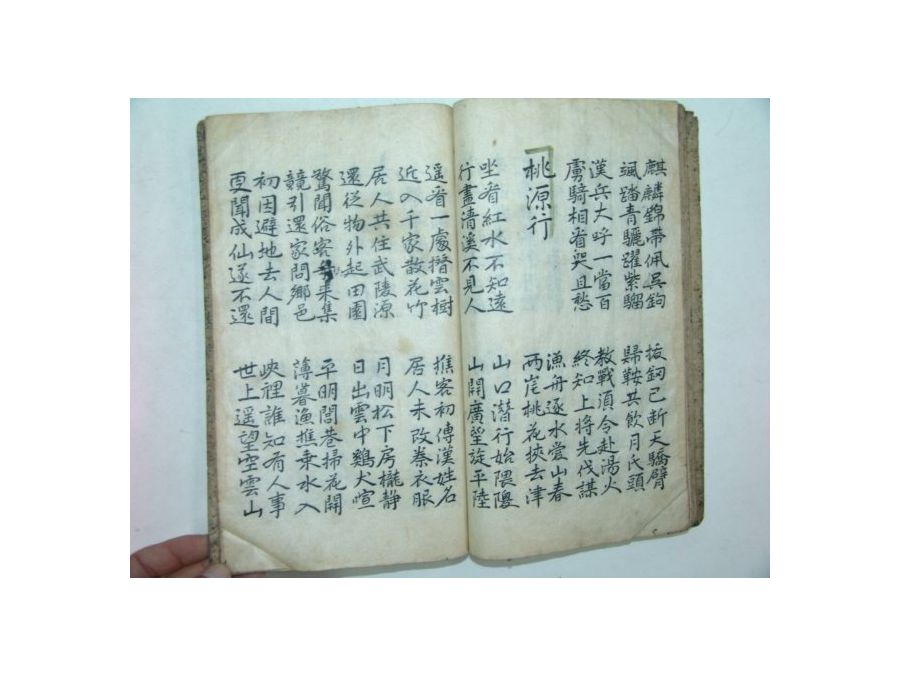 麒麟錦帶佩吳鉤
颯踏青驪躍紫騮
拔釼已斷天驕臂
歸鞍共飲月氏頭
漢兵大呼一當百
虜騎相看哭且愁
教戰須令赴湯火
終知上將先伐謀
桃源行
漁舟逐水愛山春
兩崖桃花挾去津
坐看紅水不知遠
行盡清溪不見人
山口潛行始隈隩
山開廣望旋平陸
遥看一處攢雲樹
近入千家散花竹
樵客初傳漢姓名
居人未改秦衣服
居人共住武陵源
還從物外起田園
月明松下房櫳静
日出雲中鷄犬喧
驚聞俗客來集
競引還家問鄉邑
平明閭巷掃花開
薄暮漁樵乘水入
初因避地去人間
更聞成仙遂不還
峽裡誰知有人事
世上遥望空雲山